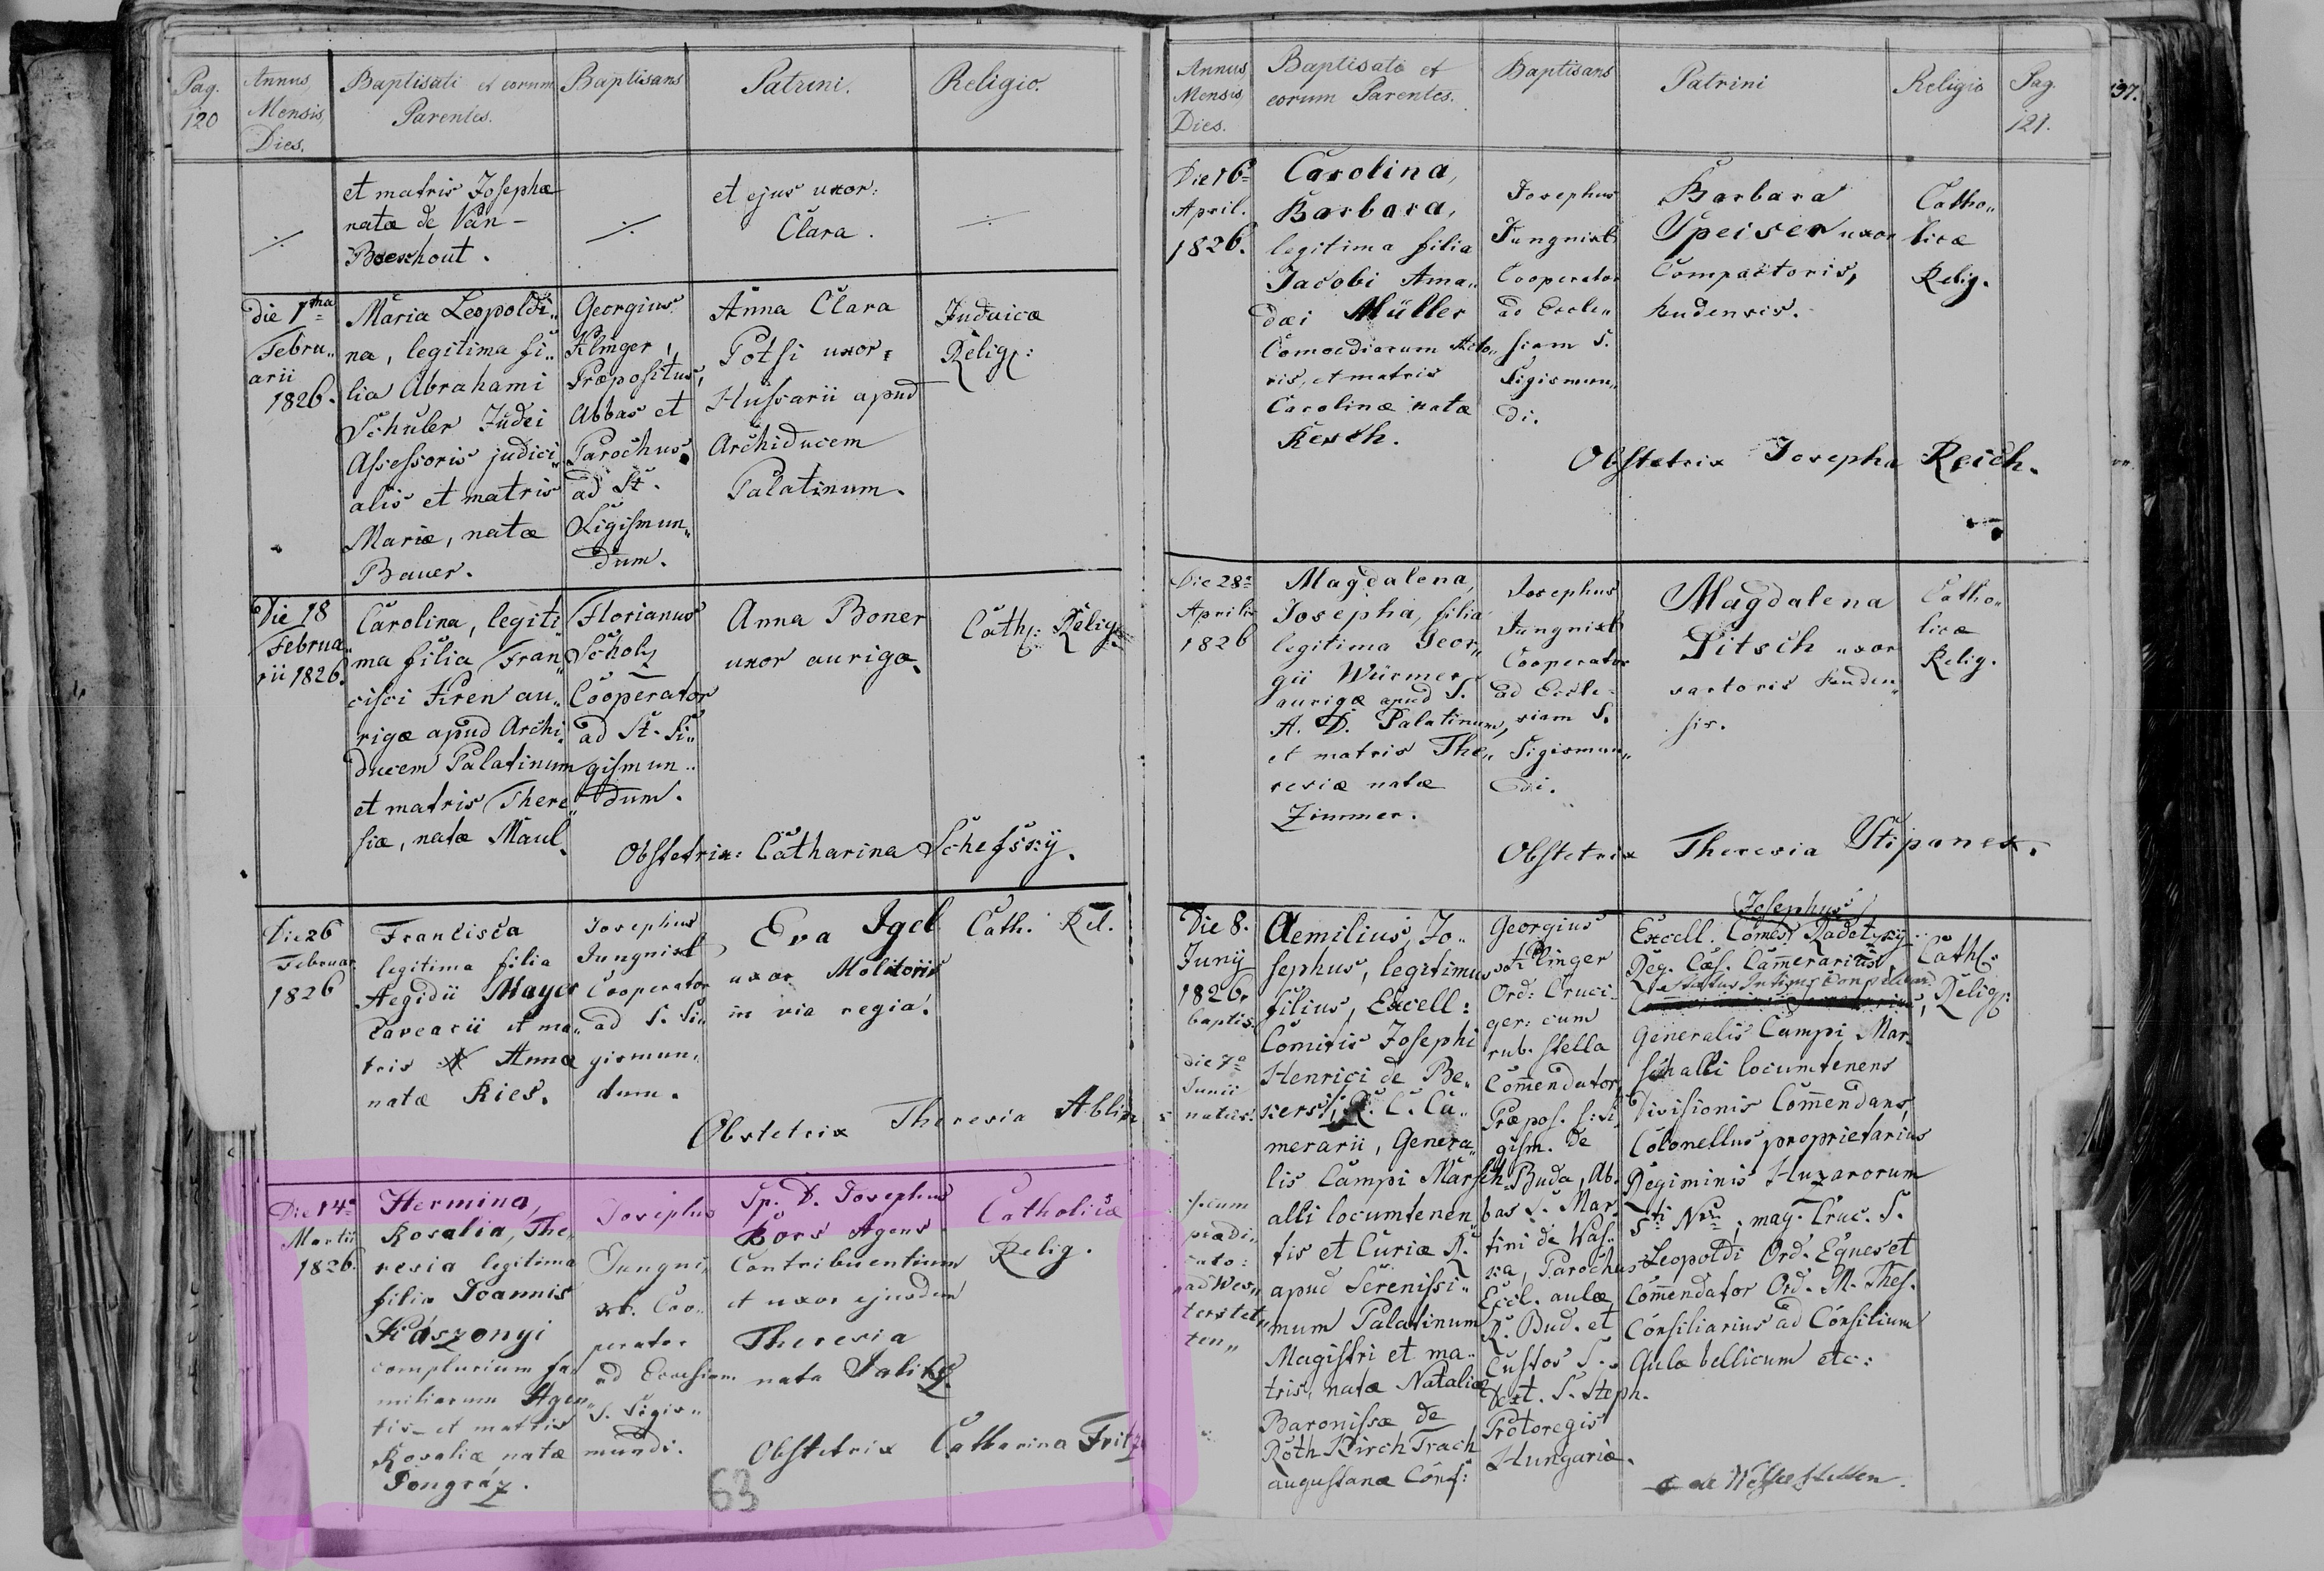 Pag.
120
Annus,
Mensis,
Dies.
Baptisati et eorum
Parentes.
Baptisans
Patrini.
Religio.
et matris Josephæ
natæ de Van-
Boeschout.
et ejus uxor:
Clara.
Die 7ma
Febru„
arii
1826.
Maria Leopoldi„
na, legitima fi„
lia Abrahami
Schuler Judei
Assessoris judici„
alis et matris
Mariæ, natæ
Bauer.
Georgius
Klinger,
Præpositus,
Abbas et
Parochus
ad St.
Sigismun„
dum.
Anna Clara
Potsi uxor
Hussarii apud
Archiducem
Palatinum.
Judaicæ
Relig:
Die 18
Februa„
rii 1826.
Carolina, legiti„
ma filia Fran„
cisci Kren au„
rigæ apud Archi„
ducem Palatinum
et matris There„
siæ, natæ Maul.
Florianus
Scholz
Cooperator
ad St. Si„
gismun„
dum.
Anna Boner
uxor aurigæ.
Cath: Relig:
Obstetrix: Catharina Schefsky.
Die 26
Februar.
1826
Francisca
legitima filia
Aegidii Mayer
Cavearii et ma„
tris Annæ
natæ Ries.
Josephus
Jungnixl
Cooperator
ad S. Si„
gismun„
dum.
Eva Igel
uxor Molitoris
in via regia.
Cath. Rel.
Obstetrix Theresia Ablin
Die 14a
Martii
1826.
Hermina,
Rosalia, The„
resia legitima
filia Joannis
Kászonyi
complurium fa„
miliarum Agen„
tis et matris
Rosaliæ natæ
Pongráz.
Josephus
Jungni„
xl. Coo„
perator
ad Ecclesiam
S. Sigis„
mundi.
Sp. D. Josephus
Kors Agens
Contribuentium
et uxor ejusdem
Theresia
nata Salitz.
Catholicæ
Relig.
Obstetrix Catharina Fritz
63
Annus,
Mensis,
Dies.
Baptisati et
eorum Parentes.
Baptisans
Patrini
Religio
Pag.
121.
197.
Die 16a
April.
1826.
Carolina,
Barbara,
legitima filia
Jacobi Ama„
dæi Müller
Comoediarum Acto„
ris, et matris
Carolinæ natæ
Resch.
Josephus
Jungnixl
Cooperator
ad Eccle„
siam S.
Sigismun„
di.
Barbara
Speiser uxor
Compactoris,
Budensis.
Catho„
licæ
Relig.
Obstetrix Josepha Reich.
Die 28a
Aprilis
1826
Magdalena,
Josepha, filia
legitima Geor„
gii Würmer
aurigæ apud S.
A. D. Palatinum,
et matris The„
resiæ natæ
Zimmer.
Josephus
Jungnixl
Cooperator
ad Eccle„
siam S.
Sigismun„
di.
Magdalena
Pitsch uxor
sartoris Buden„
sis.
Catho„
licæ
Relig.
Obstetrix Theresia Stiponex.
Die 8.
Junij
1826.
baptis.
die 7a
Junii
natus.
secum
prædi„
cato:
ad Wes„
terstet„
ten„
Aemilius, Jo„
sephus, legitimus
filius, Excell:
Comitis Josephi
Henrici de Be„
kers, R. C. Ca„
merarii, Genera„
lis Campi Marsch„
alli locumtenen„
tis et Curiæ R.
apud Serenissi„
mum Palatinum
Magistri et ma„
tris, natæ Nataliæ
Baronissæ de
Roth Kirch Trach
augustanæ Conf:
Georgius
Klinger
Ord: Cruci„
ger: cum
rub. stella
Commendator,
Præpos. S: Si„
gism. de
Buda, Ab„
bas S. Mar„
tini de Vas„
ka, Parochus
Eccl. aulæ
R. Bud. et
Custos S.
Dext. S. Steph.
Protoregis
Hungariæ.
Josephus
Excell. Comes Radetzky
Reg. Cæs. Camerarius,
Status Intimus Consiliarius,
Generalis Campi Mar„
schalli locumtenens
Divisionis Commendans,
Colonellus proprietarius
Regiminis Huzarorum
5ti Nri; mag. Cruc. S.
Leopoldi Ord. Eques et
Commendator Ord. M. Thes.
Consiliarius ad Consilium
Aulæ bellicum etc:
Cath.
Relig: